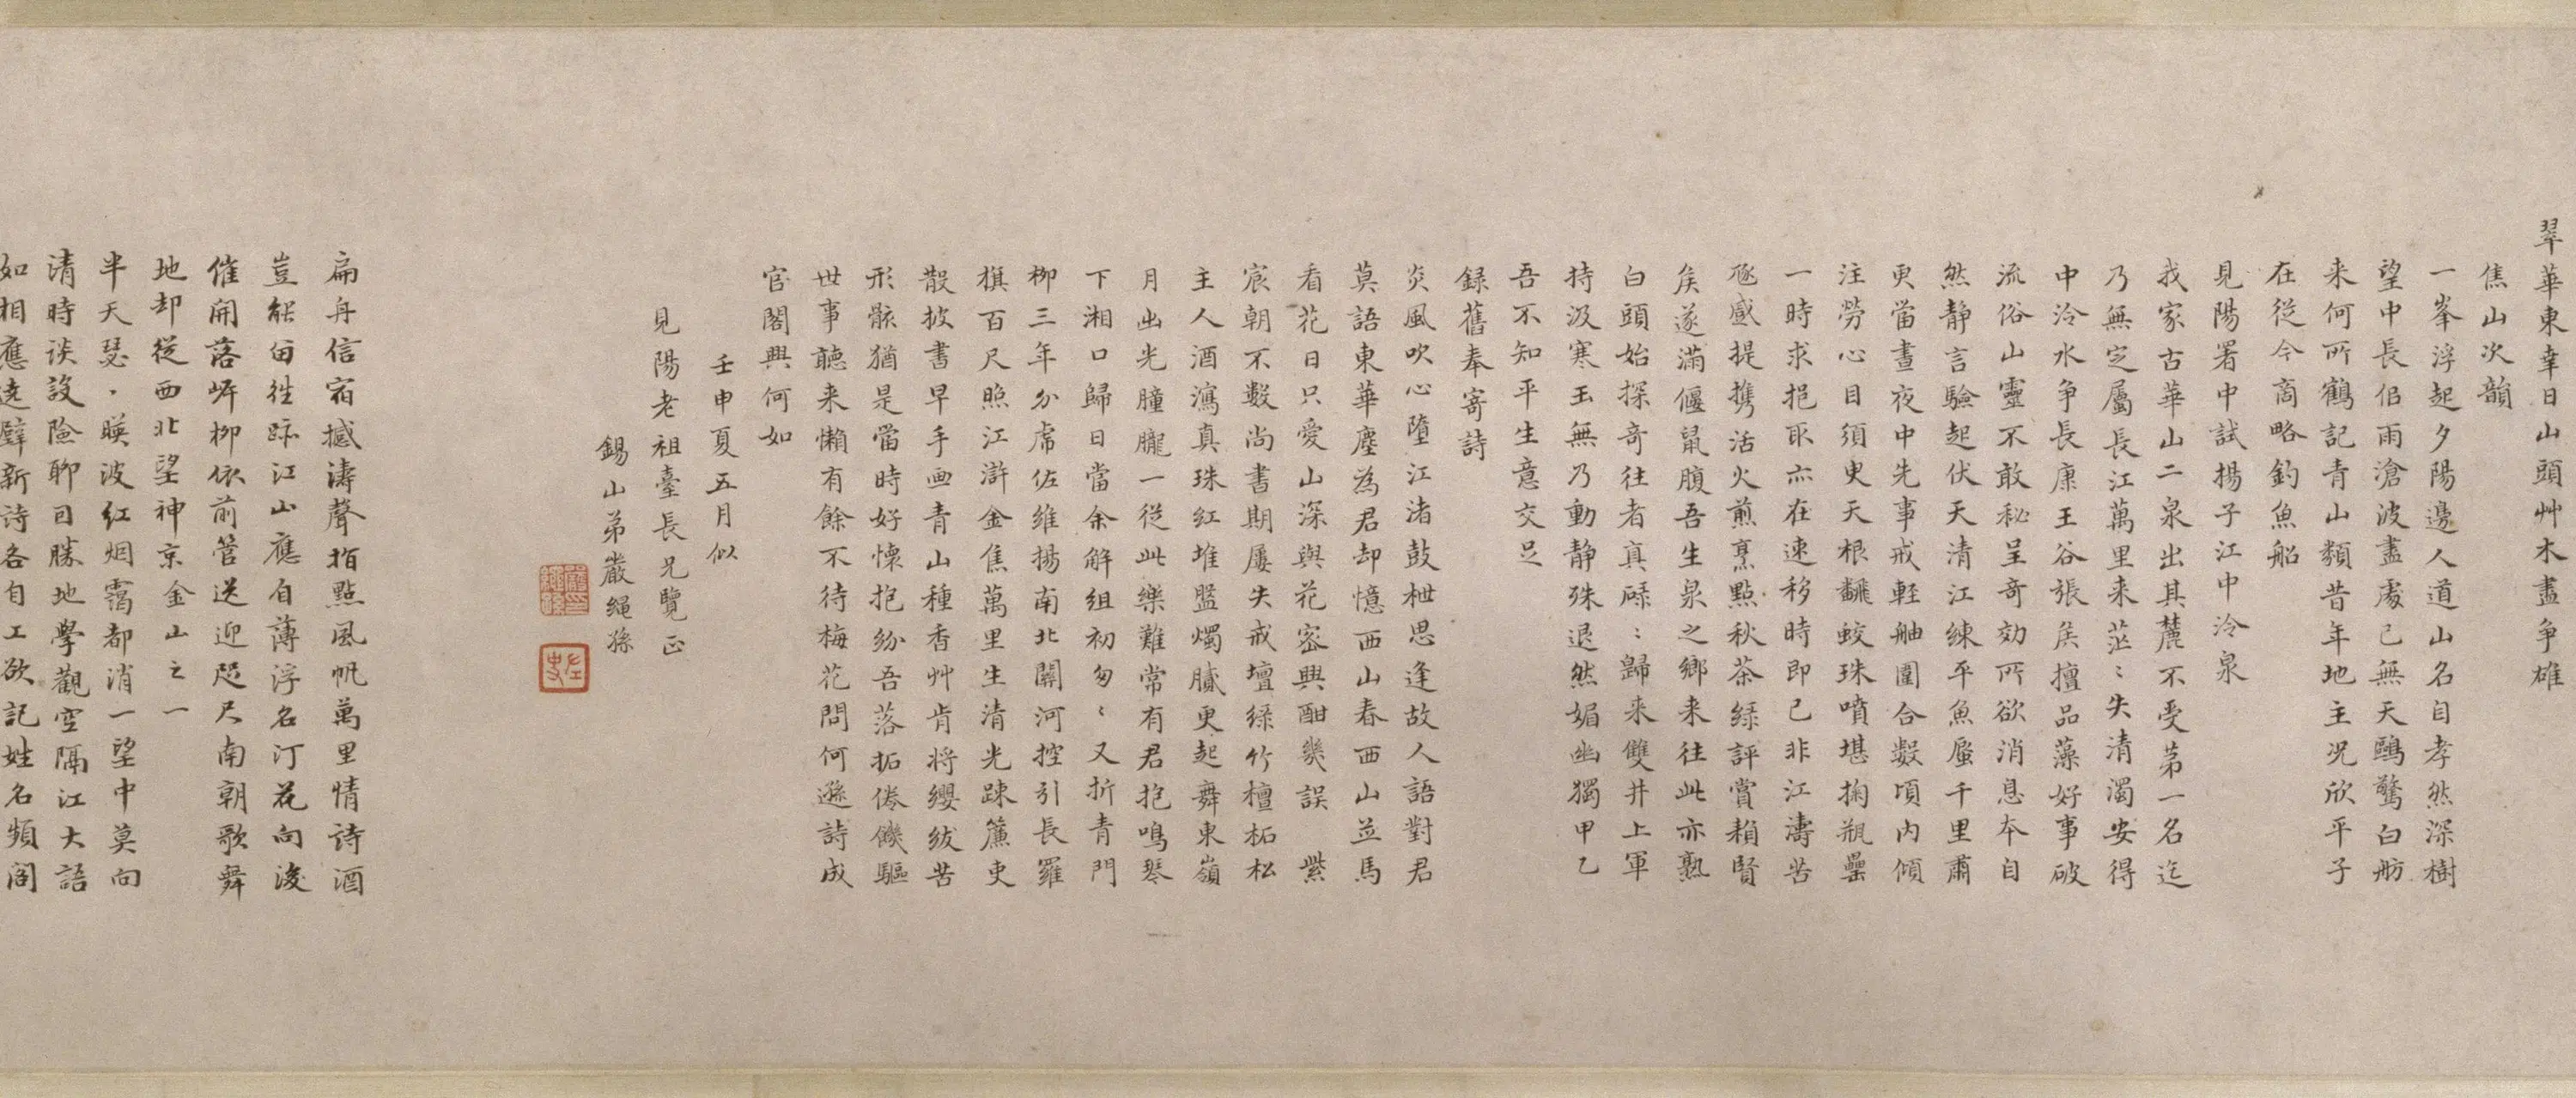 翠華東幸日山頭艸木盡争雄
焦山次韻
一峯浮起夕陽邊人道山名自孝然深樹
望中長侣雨滄波盡處已無天鷗驚白舫
来何所鶴記青山類昔年地主况欣平子
在從今商略釣魚船
見陽署中試揚子江中泠泉
我家古華山二泉出其麓不受第一名迄
乃無定屬長江萬里来茫〻失清濁安得
中泠水争長康王谷張矦擅品藻好事破
流俗山靈不敢秘呈奇効所欲消息夲自
然静言驗起伏天清江練平魚蜃千里肅
更當晝夜中先事戒輕舳圍合數頃内傾
注勞心目須臾天根飜蛟珠噴堪掬瓶罍
一時求挹取亦在速移時即已非江濤苦
亟感提携活火煎烹點秋茶緑評賞賴賢
矦遂滿偃鼠腹吾生泉之鄉来往此亦熟
白頭始探奇往者真碌〻歸来雙井上軍
持汲寒玉無乃動静殊退然媚幽獨甲乙
吾不知平生意交足
録舊奉寄詩
炎風吹心墮江渚鼓枻思逢故人語對君
莫語東華塵為君却憶西山春西山並馬
看花日只愛山深與花密興酣幾誤 紫
宸朝不數尚書期屢失戒壇緑竹檀柘松
主人酒瀉真珠紅堆盤燭膩更起舞東嶺
月出光朣朧一從此樂難常有君抱鳴琴
下湘口歸日當余解組初匆〻又折青門
柳三年分席佐維揚南北關河控引長羅
旗百尺照江滸金焦萬里生清光踈簾吏
散披書早手画青山種香艸肯將纓紱苦
形骸猶是當時好懐抱紛吾落拓倦饑驅
世事聽来懶有餘不待梅花問何遜詩成
官閣興何如
壬申夏五月似
見陽老祖臺長兄覽正
錫山弟嚴繩孫
嚴印繩孫
左史
扁舟信宿撼濤聲指點風帆萬里情诗酒
豈能留徃跡江山應自薄浮名汀花向浚
催開落岍柳依前管送迎咫尺南朝歌舞
地却從西北望神京金山之一
半天瑟〻暎波红烟靄都消一望中莫向
清時谈設險聊曰勝地學觀空隔江大語
如相應遶壁新诗各自工欲記姓名頻阁